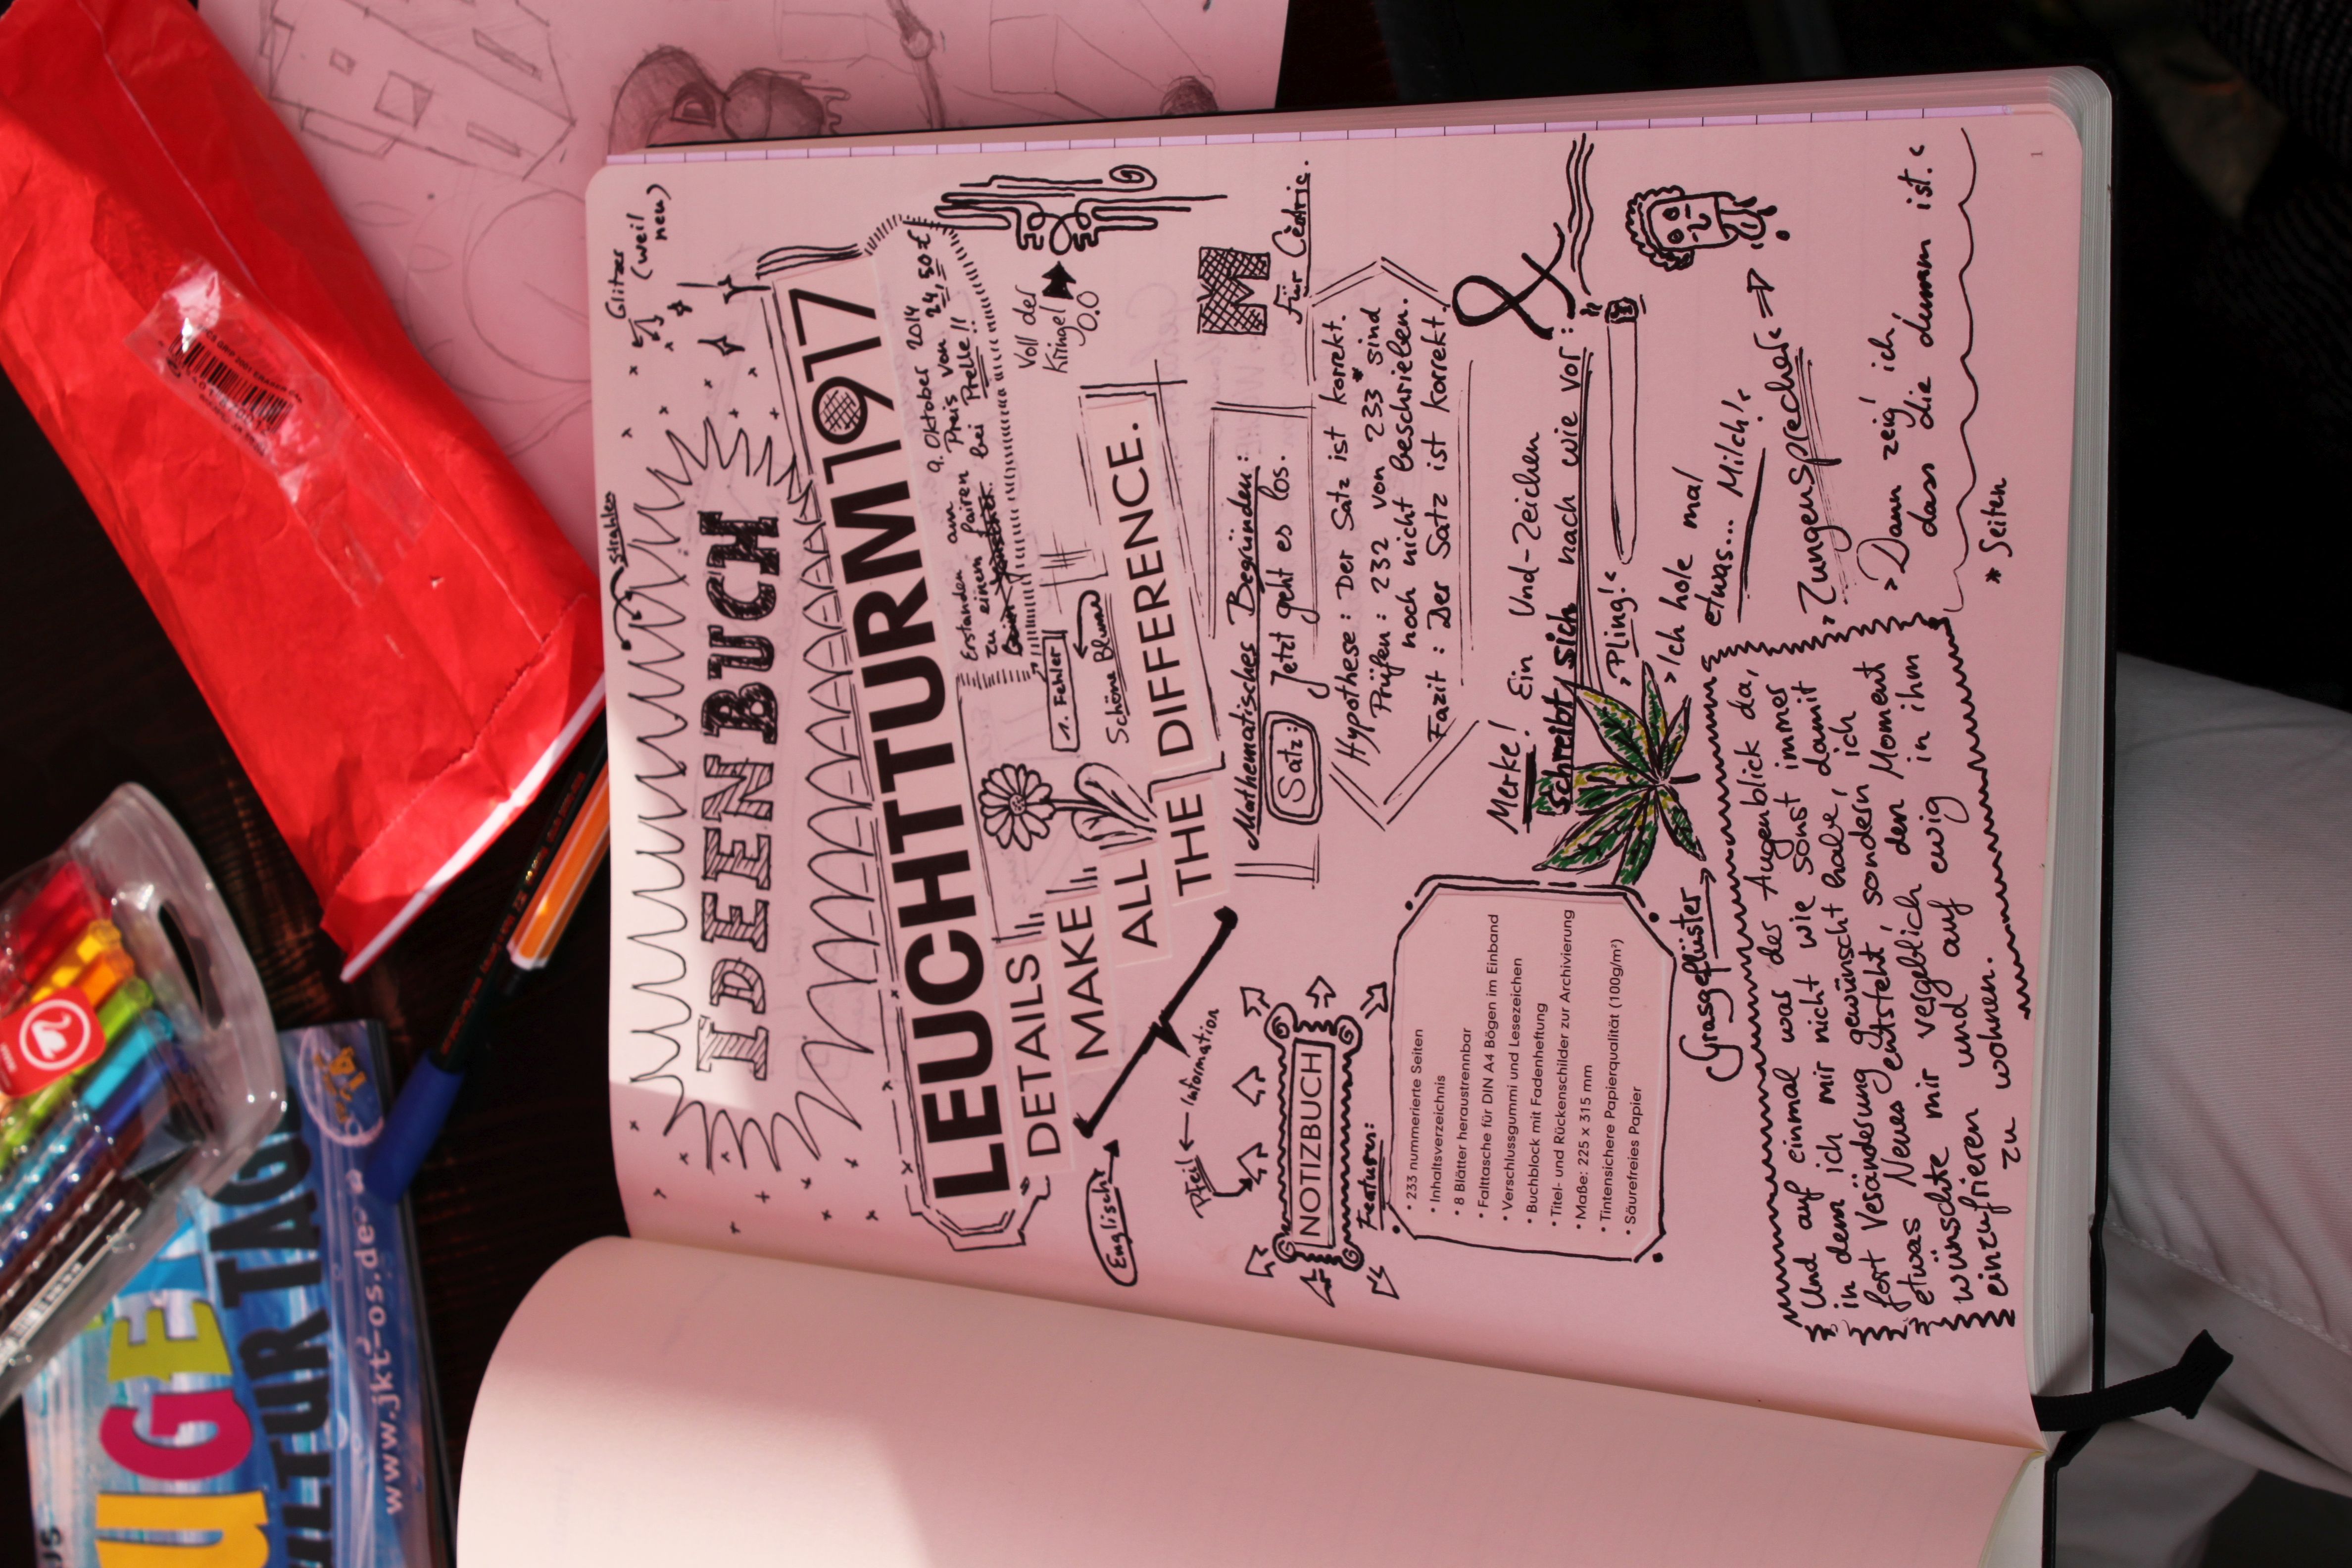 Strahlen
Glitzer
(weil
neu)
IDEENBUCH
LEUCHTTURM1917
Erstanden am 9. Oktober 2014
zu einem fairen Preis von 24,50€
bei Prelle!!
1. Fehler
Schöne Blume
Voll der
Kringel
0.0
DETAILS
MAKE
ALL
THE DIFFERENCE.
Englisch
Pfeil ← Information
M
für Cèdric.
Mathematisches Begründen:
Satz: Jetzt geht es los.
Hypothese: Der Satz ist korrekt.
Prüfen: 232 von 233* sind
noch nicht beschrieben.
Fazit: Der Satz ist korrekt.
NOTIZBUCH
Featuren:
• 233 nummerierte Seiten
• Inhaltsverzeichnis
• 8 Blätter heraustrennbar
• Falttasche für DIN A4 Bögen im Einband
• Verschlussgummi und Lesezeichen
• Buchblock mit Fadenheftung
• Titel- und Rückenschilder zur Archivierung
• Maße: 225 x 315 mm
• Tintensichere Papierqualität (100g/m²)
• Säurefreies Papier
Merke! Ein Und-Zeichen
schreibt sich nach wie vor: &
>Pling!<
>Ich hole mal
etwas... Milch!<
>Zungensprecher<
>Dann zeig' ich,
dass die dumm ist.<
* Seiten
Grasgeflüster
Und auf einmal was der Augenblick da,
in dem ich mir nicht wie sonst immer
fort Veränderung gewünscht habe, damit
etwas Neues entsteht, sondern ich
wünschte mir vergeblich den Moment
einzufrieren und auf ewig in ihm
zu wohnen.
1
UGE
ULTUR TAG
www.jkt-os.de